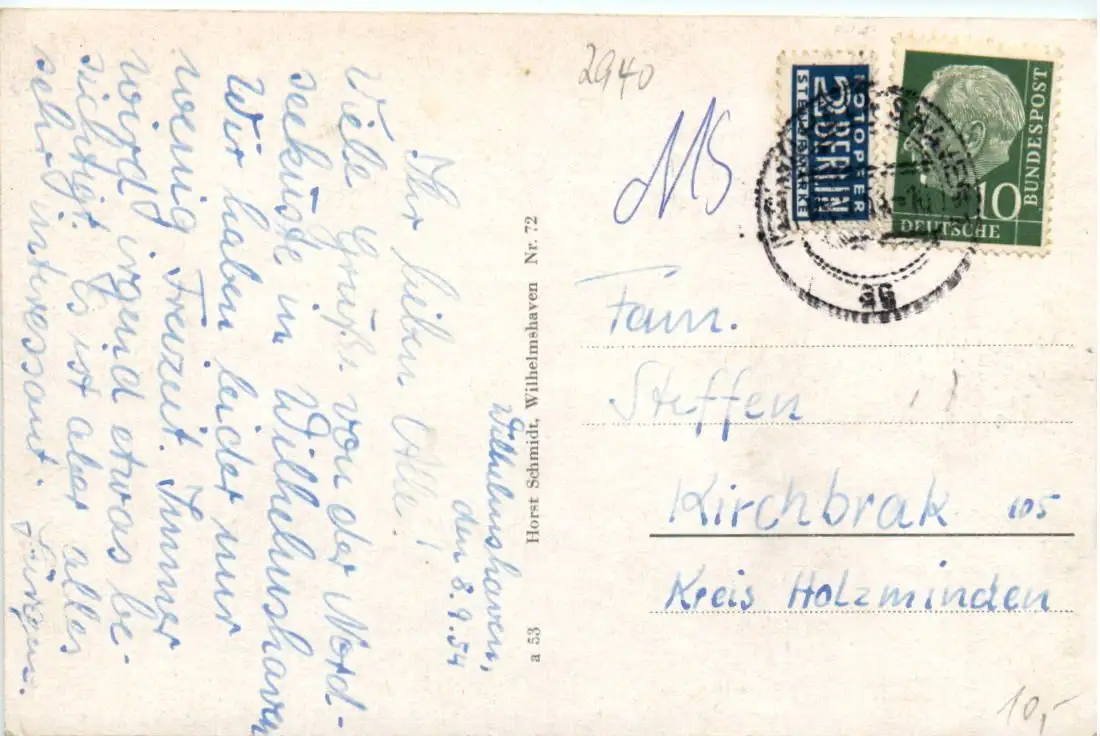 Wilhelmshaven,
den 8.9.54
Ihr lieben Alle!
Viele Grüße von der Nord-
seeküste in Wilhelmshaven
Wir haben leider nur
wenig Freizeit. Immer
wird irgend etwas be-
sichtigt. Es ist aber alles
sehr interessant.
Jürgen.
a 53 Horst Schmidt, Wilhelmshaven Nr. 72
2940
NOTOPFER
2 BERLIN
STEUERMARKE
10
BUNDESPOST
DEUTSCHE
Fam.
Steffen
Kirchbrak 105
Kreis Holzminden
10,-